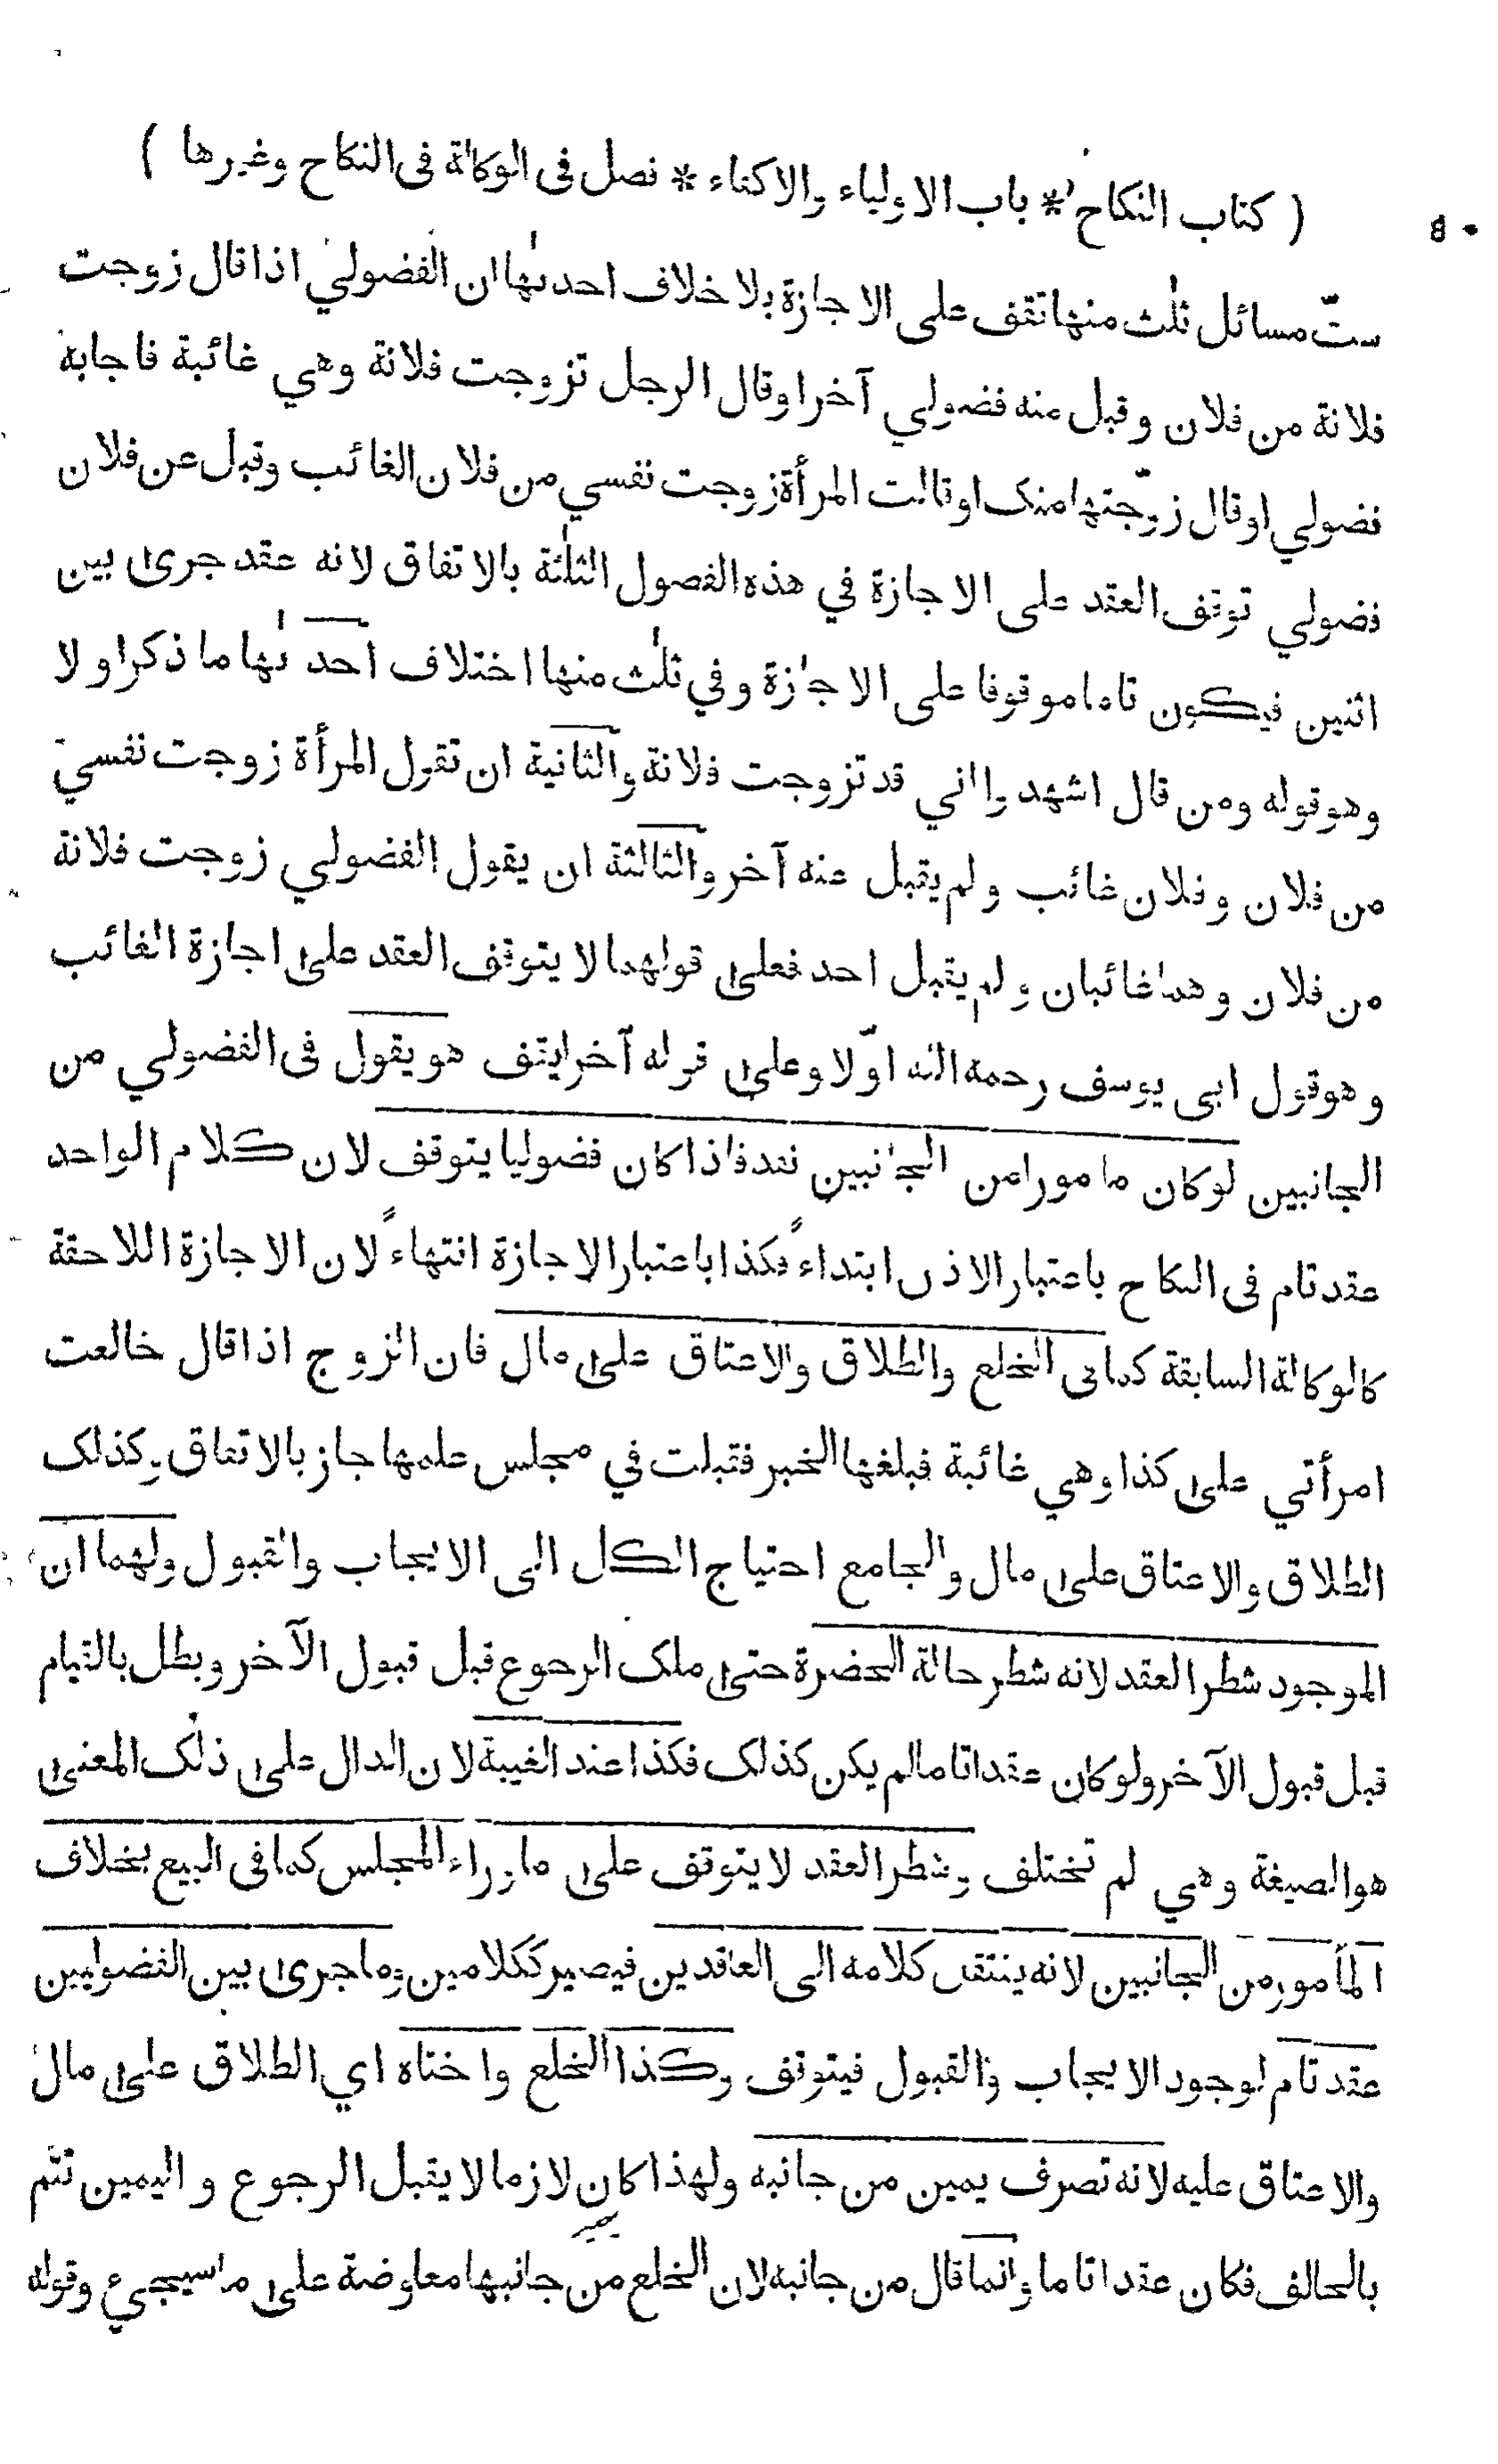 ( كتاب النكاح * باب الاولياء والاكفاء * فصل فى الوكالة فى النكاح وغيرها )
ستّ مسائل ثلٰث منها تقف على الاجازة بلا خلاف احدٰىها ان الفضولي اذا قال زوجت
فلانة من فلان وقبل منه فضولي آخر او قال الرجل تزوجت فلانة وهي غائبة فاجابه
فضولي او قال زوّجتها منك او قالت المرأة زوجت نفسي من فلان الغائب وقبل عن فلان
فضولي توقف العقد على الاجازة في هذه الفصول الثلٰثة بالاتفاق لانه عقد جرى بين
اثنين فيكون تاما موقوفا على الاجازة وفي ثلٰث منها اختلاف احدٰىها ما ذكر اولا
وهو قوله ومن قال اشهدوا اني قد تزوجت فلانة والثانية ان تقول المرأة زوجت نفسي
من فلان وفلان غائب ولم يقبل عنه آخر والثالثة ان يقول الفضولي زوجت فلانة
من فلان وهما غائبان ولم يقبل احد فعلى قولهما لا يتوقف العقد على اجازة الغائب
وهو قول ابى يوسف رحمه الله اوّلا وعلى قوله آخرا يقف هو يقول فى الفضولي من
الجانبين لو كان مامورا من الجانبين نفد فاذا كان فضوليا يتوقف لان كلام الواحد
عقد تام فى النكاح باعتبار الاذن ابتداءً فكذا باعتبار الاجازة انتهاءً لان الاجازة اللاحقة
كالوكالة السابقة كما فى الخلع والطلاق والاعتاق على مال فان الزوج اذا قال خالعت
امرأتي على كذا وهي غائبة فبلغها الخبر فقبلت في مجلس علمها جاز بالاتفاق وكذلك
الطلاق والاعتاق على مال والجامع احتياج الكل الى الايجاب والقبول ولهما ان
الموجود شطر العقد لانه شطر حالة الحضرة حتى ملك الرجوع قبل قبول الآخر وبطل بالقيام
قبل قبول الآخر ولو كان عقدا تاما لم يكن كذلك فكذا عند الغيبة لان الدال على ذلك المعنى
هو الصيغة وهي لم تختلف وشطر العقد لا يتوقف على ماوراء المجلس كما فى البيع بخلاف
المأمور من الجانبين لانه ينتقل كلامه الى العاقدين فيصير ككلامين وما جرى بين الفضوليين
عقد تام لوجود الايجاب والقبول فيتوقف وكذا الخلع واختاه اي الطلاق على مال
والاعتاق عليه لانه تصرف يمين من جانبه ولهذا كان لازما لا يقبل الرجوع واليمين تتم
بالحالف فكان عقدا تاما وانما قال من جانبه لان الخلع من جانبها معاوضة على ما سيجيء وقوله